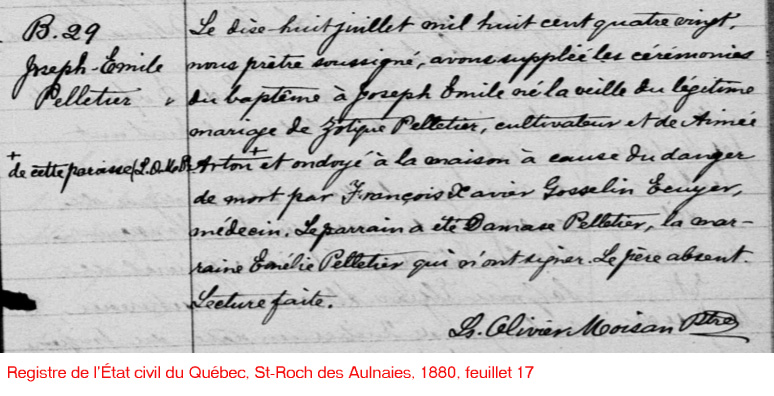 B. 29
Joseph-Emile
Pelletier
+
de cette paroisse (L.O.M. Ptre
Le dise-huit juillet mil huit cent quatre vingt,
nous prêtre soussigné, avons suppléé les cérémonies
du baptême à Joseph Emile né la veille du légitime
mariage de Zotique Pelletier, cultivateur et de Aimée
Arton + et ondoyé à la maison à cause du danger
de mort par François Xavier Gosselin Ecuyer,
médecin. Le parrain a été Damase Pelletier, la mar-
raine Emélie Pelletier qui n'ont signer. Le père absent.
Lecture faite.
Ls. Olivier Moisan Ptre
Registre de l'État civil du Québec, St-Roch des Aulnaies, 1880, feuillet 17